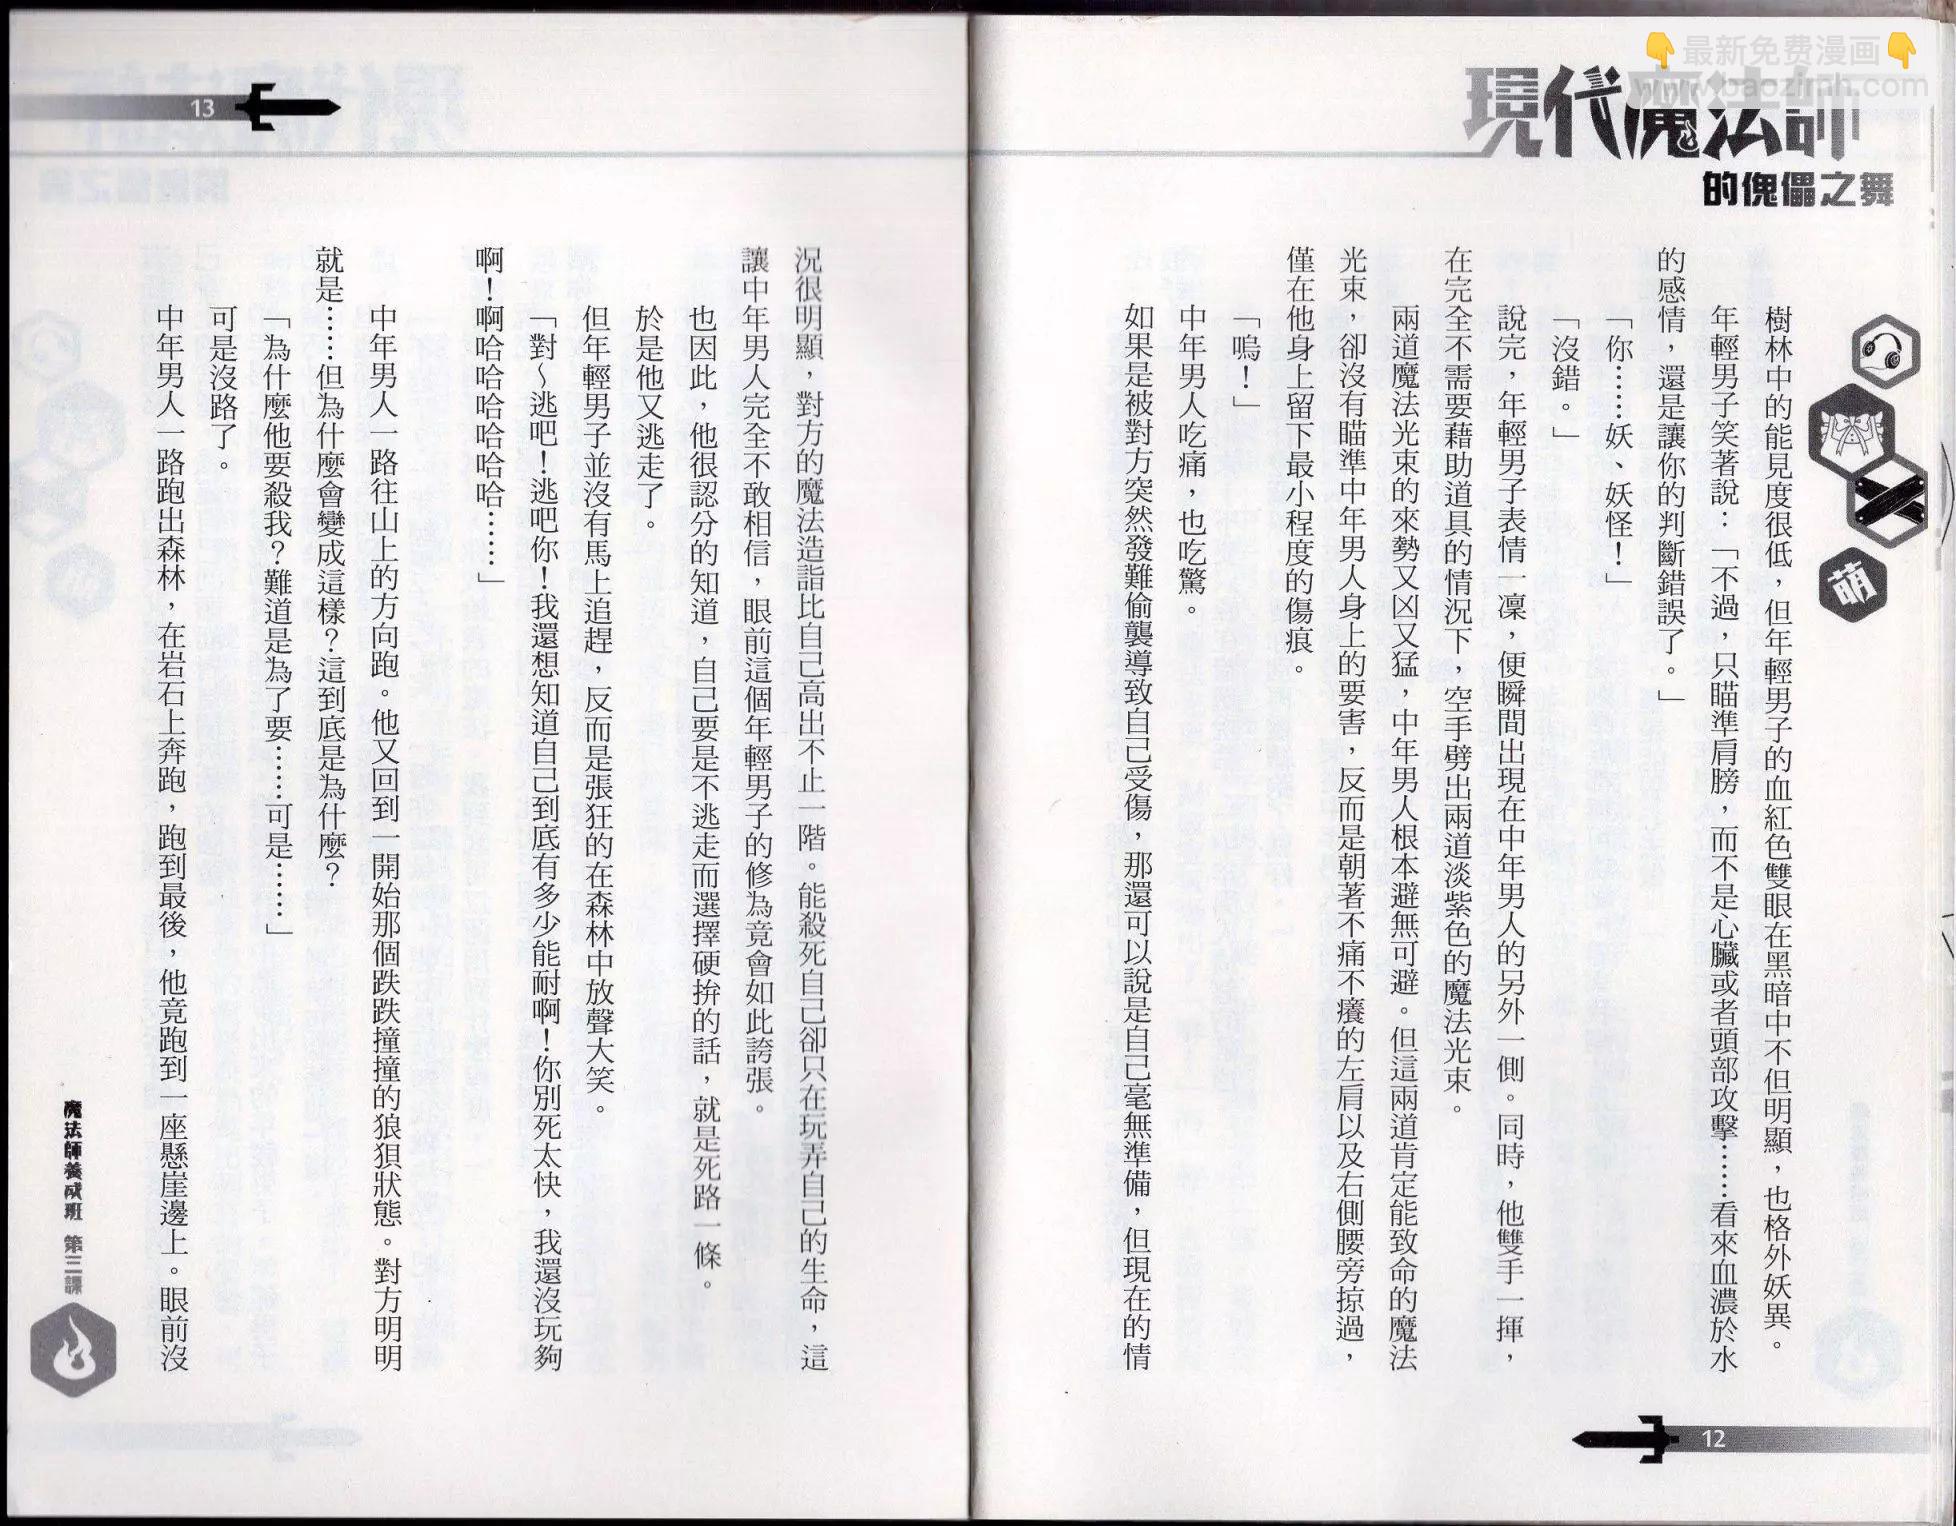 👇最新免费漫画👇
www.baozimh.com
現代魔法師
的傀儡之舞
萌
樹林中的能見度很低，但年輕男子的血紅色雙眼在黑暗中不但明顯，也格外妖異。
年輕男子笑著說：「不過，只瞄準肩膀，而不是心臟或者頭部攻擊……看來血濃於水
的感情，還是讓你的判斷錯誤了。」
「你……妖、妖怪！」
「沒錯。」
說完，年輕男子表情一凜，便瞬間出現在中年男人的另外一側。同時，他雙手一揮，
在完全不需要藉助道具的情況下，空手劈出兩道淡紫色的魔法光束。
兩道魔法光束的來勢又凶又猛，中年男人根本避無可避。但這兩道肯定能致命的魔法
光束，卻沒有瞄準中年男人身上的要害，反而是朝著不痛不癢的左肩以及右側腰旁掠過，
僅在他身上留下最小程度的傷痕。
「嗚！」
中年男人吃痛，也吃驚。
如果是被對方突然發難偷襲導致自己受傷，那還可以說是自己毫無準備，但現在的情
12
況很明顯，對方的魔法造詣比自己高出不止一階。能殺死自己卻只在玩弄自己的生命，這
讓中年男人完全不敢相信，眼前這個年輕男子的修為竟會如此誇張。
也因此，他很認分的知道，自己要是不逃走而選擇硬拚的話，就是死路一條。
於是他又逃走了。
但年輕男子並沒有馬上追趕，反而是張狂的在森林中放聲大笑。
「對～逃吧！逃吧你！我還想知道自己到底有多少能耐啊！你別死太快，我還沒玩夠
啊！啊哈哈哈哈哈哈……」
中年男人一路往山上的方向跑。他又回到一開始那個跌跌撞撞的狼狽狀態。對方明明
就是……但為什麼會變成這樣？這到底是為什麼？
「為什麼他要殺我？難道是為了要……可是……」
可是沒路了。
中年男人一路跑出森林，在岩石上奔跑，跑到最後，他竟跑到一座懸崖邊上。眼前沒
13
魔法師養成班 第三課